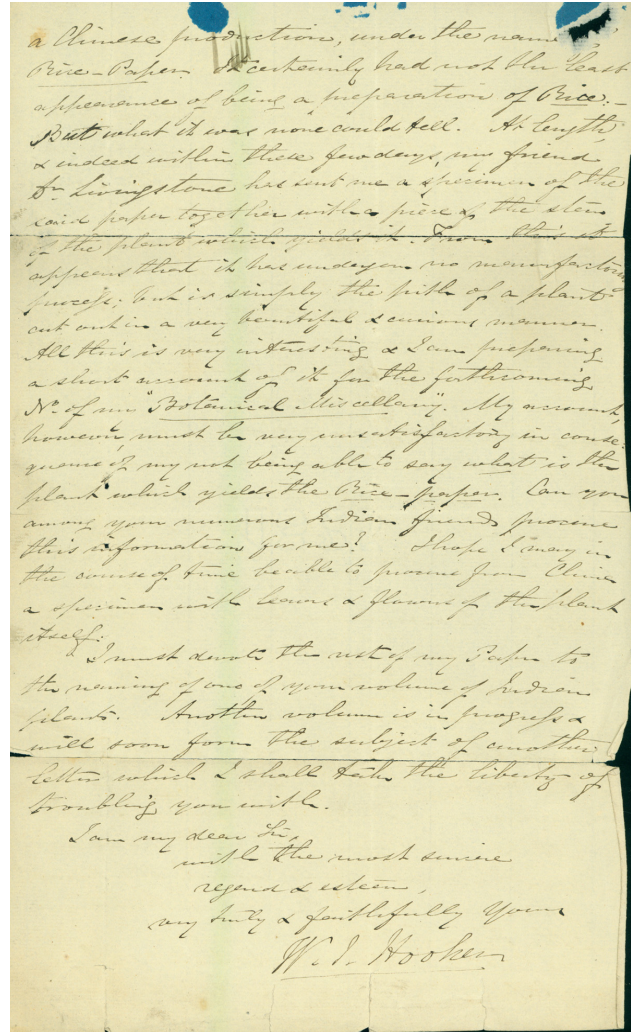 a Chinese production, under the name
Rice-Paper. It certainly had not the least
appearance of being a preparation of Rice:-
But what it was none could tell. At length,
& indeed within these few days, my friend
Dr. Livingstone has sent me a specimen of the
said paper together with a piece of the stem
of the plant which yields it. From this it
appears that it has undergone no manufacturing
process; but is simply the pith of a plant
cut out in a very beautiful & curious manner.
All this is very interesting & I am preparing
a short account of it for the forthcoming
No. of my "Botanical Miscellany". My account,
however, must be very unsatisfactory in conse-
quence of my not being able to say what is the
plant which yields the Rice-paper. Can you
among your numerous Indian friends procure
this information for me? I hope I may in
the course of time be able to procure from China
a specimen with leaves & flowers of the plant
itself.
I must devote the rest of my Paper to
the naming of one of your volume of Indian
plants. Another volume is in progress &
will soon form the subject of another
letter which I shall take the liberty of
troubling you with.
I am my dear Sir,
with the most sincere
regard & esteem,
very truly & faithfully Yours
W. J. Hooker